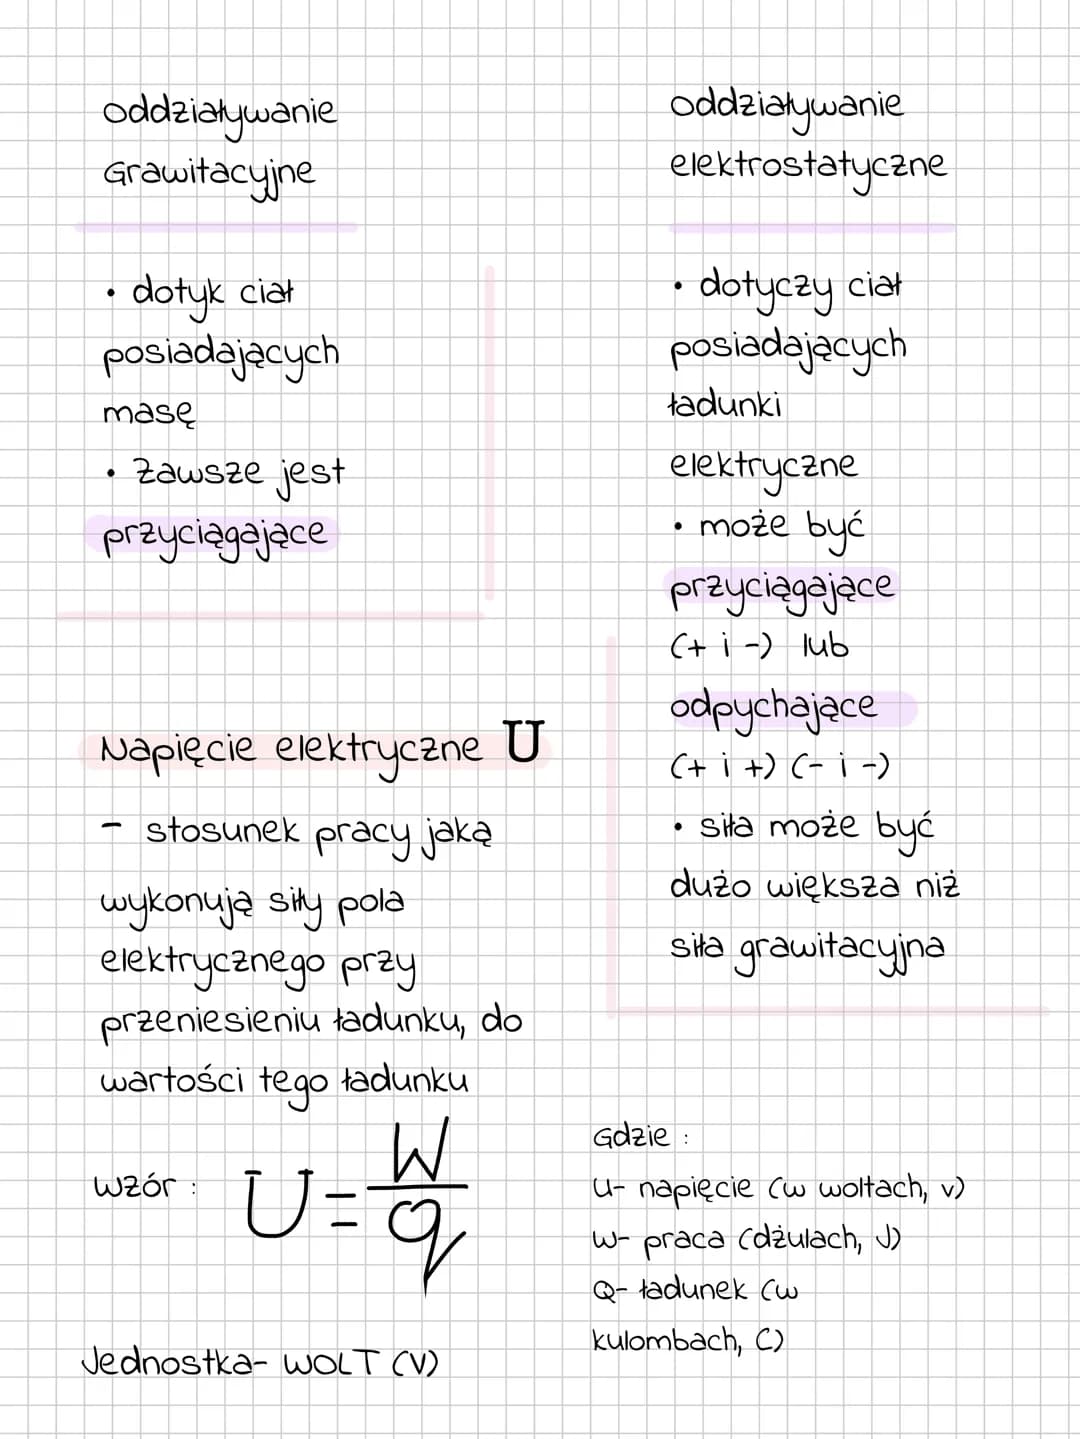 Oddziaływanie
Grawitacyjne
• dotyk ciał
posiadających
masę
• Zawsze jest
przyciągające
Oddziaływanie
elektrostatyczne
• dotyczy ciał
posiadających
ładunki
elektryczne
• może być
przyciągające
(+ i -) lub
odpychające
(+ i +) (- i -)
• siła może być
dużo większa niż
siła grawitacyjna
Napięcie elektryczne U
- stosunek pracy jaką
wykonują siły pola
elektrycznego przy
przeniesieniu ładunku, do
wartości tego ładunku
wzór : U = W/q
Jednostka- WOLT (V)
Gdzie :
U- napięcie (w woltach, v)
W- praca (dżulach, J)
Q- ładunek (w
kulombach, C)